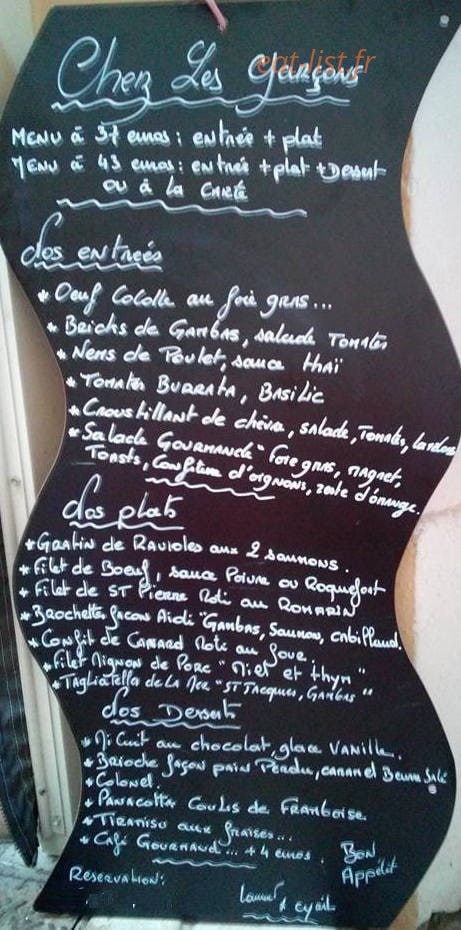 Chez Les Garçons
eat-list.fr
MENU à 37 euros : entrée + plat
MENU à 43 euros : entrée + plat + Dessert
ou à la CARTE
Nos entreés
* Oeuf Cocotte au foie gras...
* Bricks de GAMBAS, salade Tomates
* Nems de Poulet, sauce thaï
* TOMATES BURRATA, BASILIC
* Croustillant de chèvre, salade, Tomates, lardons
* Salade Gourmande " Foie gras, magret,
Toasts, Confiture d'oignons, zeste d'orange.
Nos plats
* Gratin de Ravioles aux 2 saumons.
* Filet de Boeuf, sauce Poivre ou Roquefort
* Filet de ST Pierre Roti au ROMARIN
* Brochette façon Aïoli "Gambas, Saumon, cabillaud.
* Confit de Canard Roti au Four.
* Filet Mignon de Porc " Miel et thym "
* Tagliatelle de La Mer "ST Jacques, Gambas "
Nos Desserts
* Mi Cuit au chocolat, glace VANILLE.
* Brioche façon pain Perdu, caramel Beurre Salé
* Colonel.
* Panacotta Coulis de Framboise
* Tiramiso aux fraises...
* Café Gourmand... + 4 euros.
Bon
Appétit
RESERVATION:
& Cyril